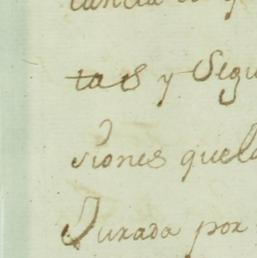 tas y Segu
siones quela
Jurada por